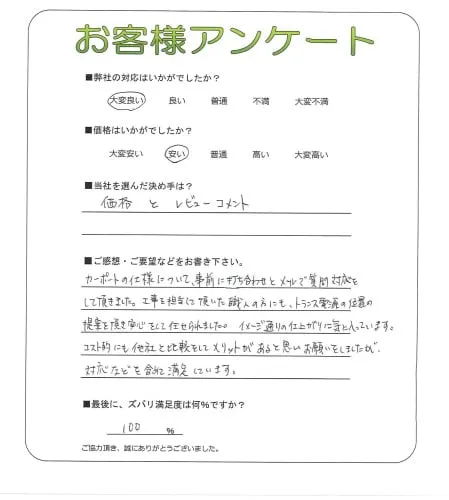 お客様アンケート
■弊社の対応はいかがでしたか？
大変良い 良い 普通 不満 大変不満
■価格はいかがでしたか？
大変安い 安い 普通 高い 大変高い
■当社を選んだ決め手は？
価格 と レビューコメント
■ご感想・ご要望などをお書き下さい。
カーポートの仕様について、事前に打ち合わせとメールで質問対応を
して頂きました。工事を担当して頂いた職人の方にも、トランス電源の位置の
提案を頂き安心をして任せられました。 イメージ通りの仕上がりに気に入っています。
コスト的にも他社と比較をしてメリットがあると思いお願いをしましたが、
対応なども含めて満足しています。
■最後に、ズバリ満足度は何％ですか？
100 %
ご協力頂き、誠にありがとうございました。